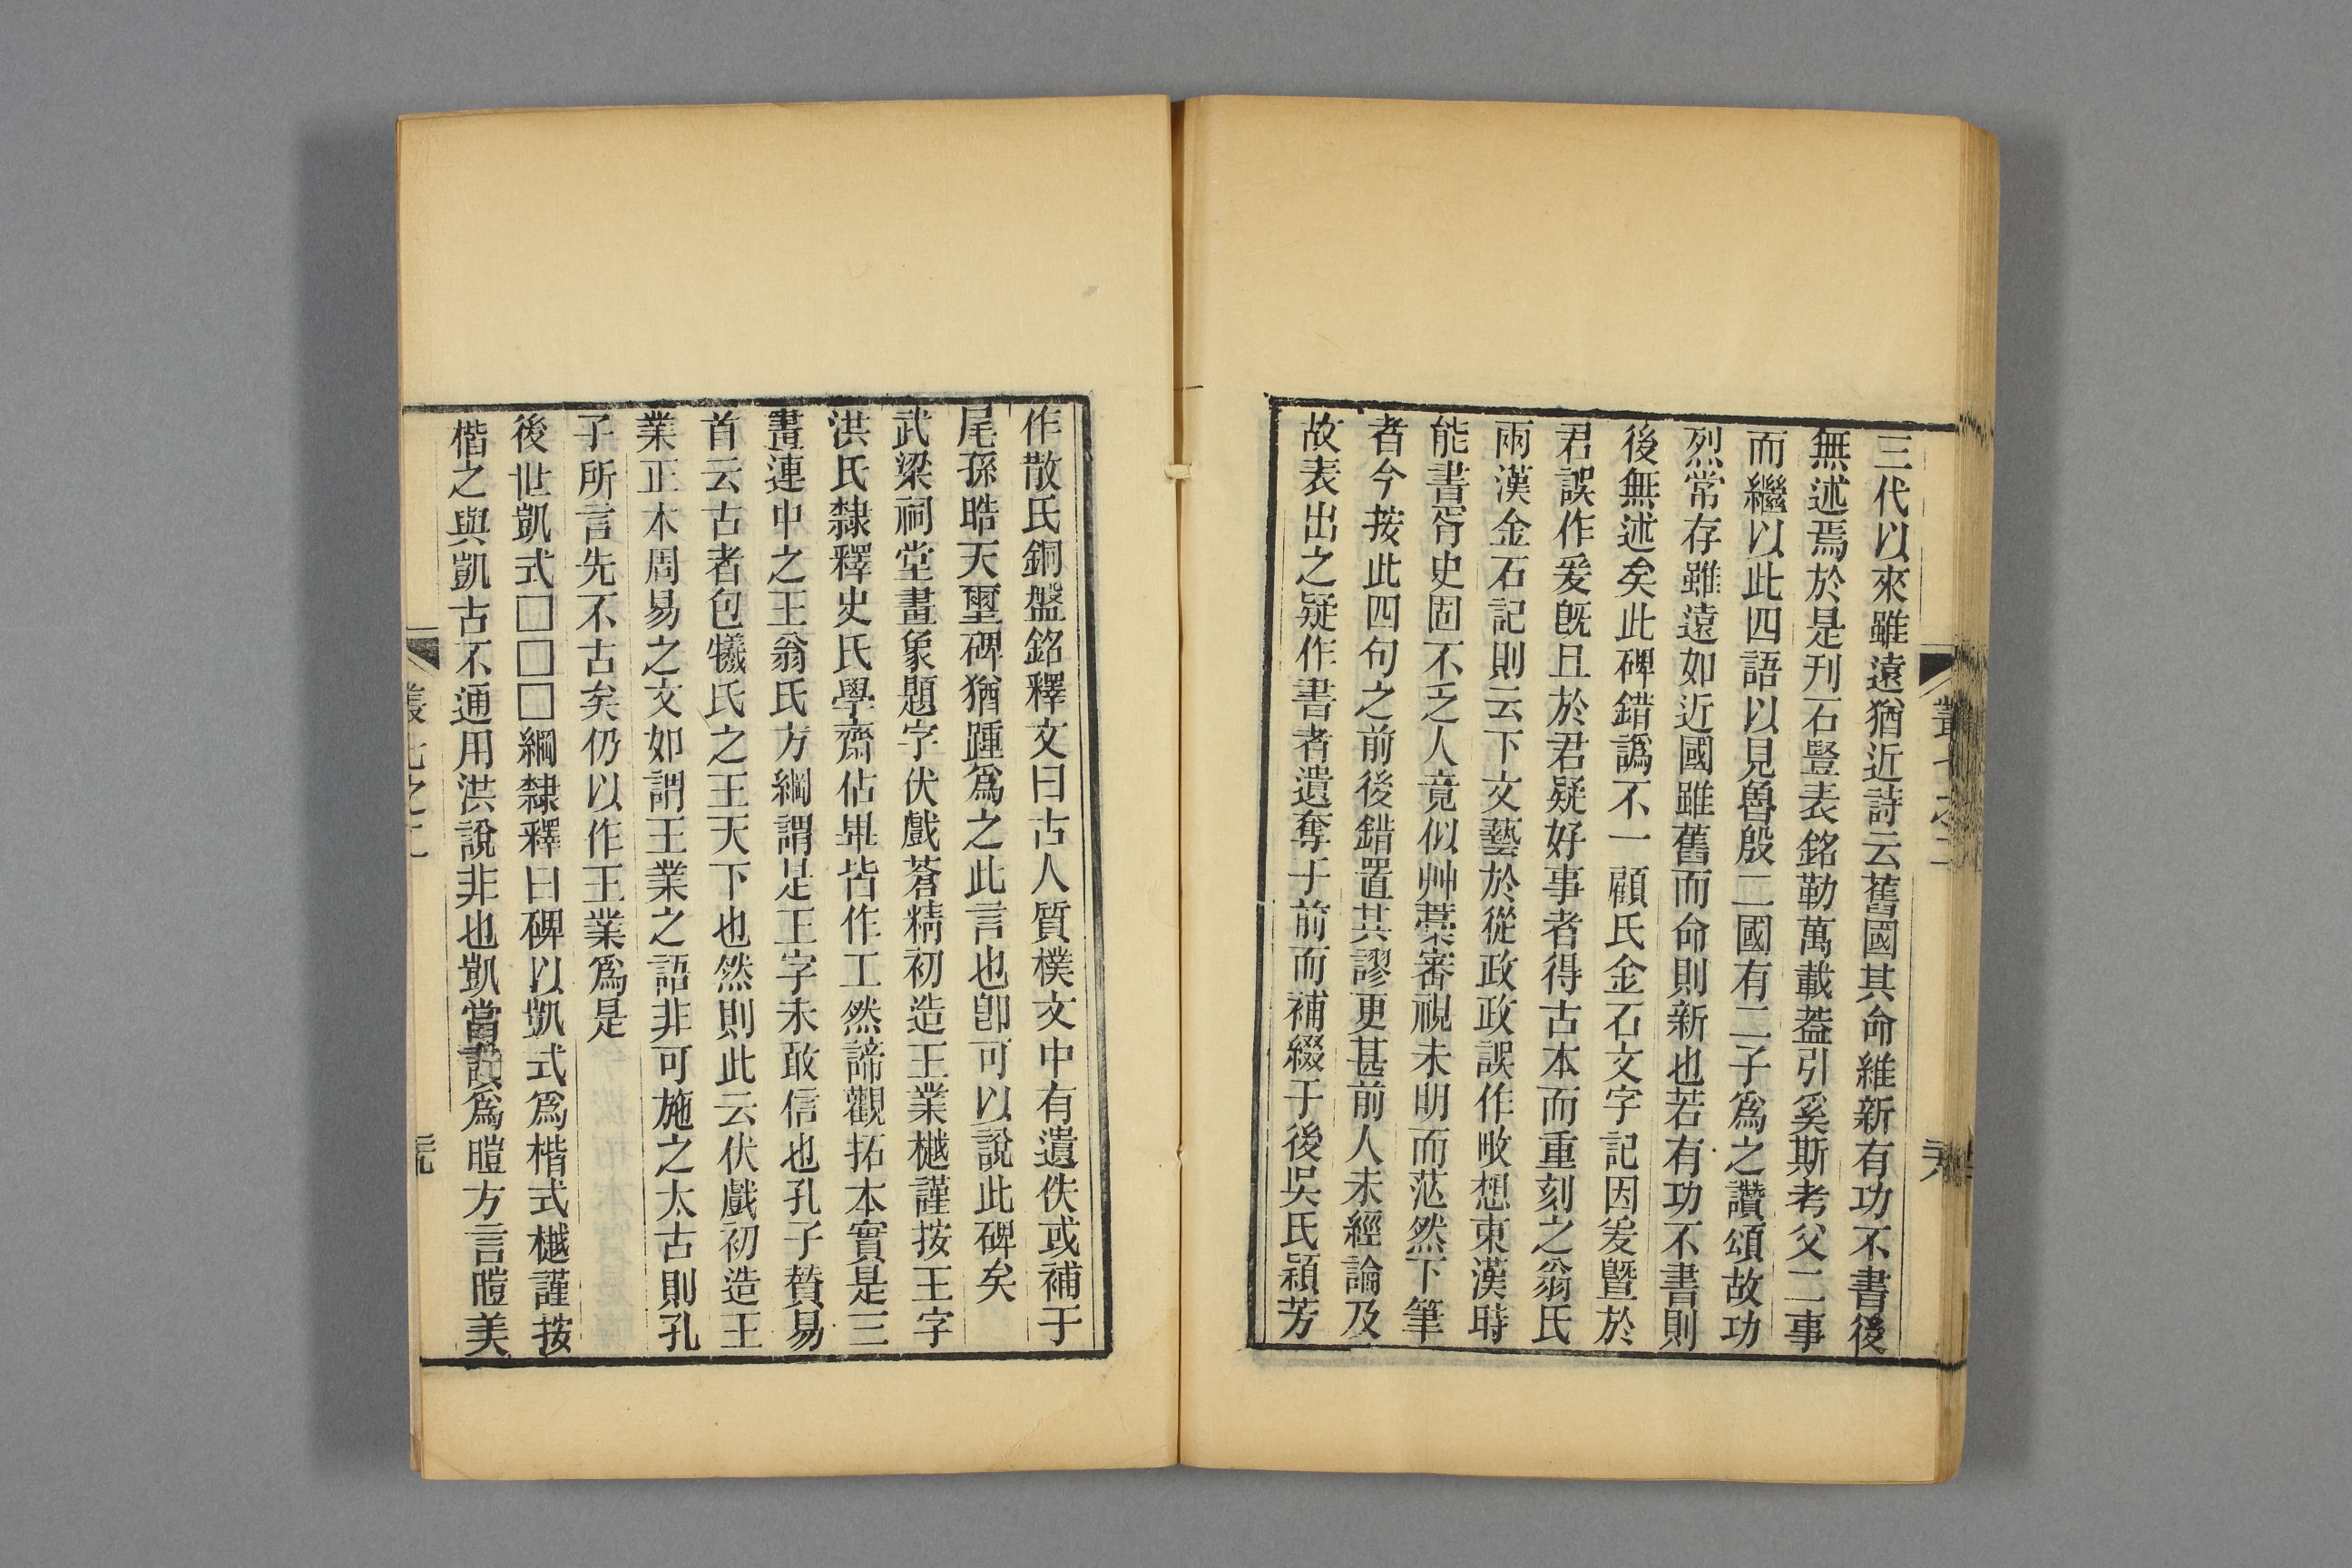 三代以來雖遠猶近詩云舊國其命維新有功不書後
無述焉於是刊石豎表銘勒萬載葢引奚斯考父二事
而繼以此四語以見魯殷二國有二子爲之讚頌故功
烈常存雖遠如近國雖舊而命則新也若有功不書則
後無述矣此碑錯譌不一顧氏金石文字記因爰曁於
君誤作爰旣且於君疑好事者得古本而重刻之翁氏
兩漢金石記則云下文藝於從政政誤作畋想東漢時
能書胥史固不乏人竟似艸藁審視未明而茫然下筆
者今按此四句之前後錯置其謬更甚前人未經論及
故表出之疑作書者遺奪于前而補綴于後吳氏穎芳
作散氏銅盤銘釋文曰古人質樸文中有遺佚或補于
尾孫晧天璽碑猶踵爲之此言也卽可以說此碑矣
武梁祠堂畫象題字伏戲蒼精初造王業樾謹按王字
洪氏隸釋史氏學齋佔畢皆作工然諦觀拓本實是三
畫連中之王翁氏方綱謂是王字未敢信也孔子贊易
首云古者包犧氏之王天下也然則此云伏戲初造王
業正本周易之文如謂王業之語非可施之太古則孔
子所言先不古矣仍以作王業爲是
後世凱式□□□綱隸釋曰碑以凱式爲楷式樾謹按
楷之與凱古不通用洪說非也凱當讀爲暟方言暟美
叢七之二